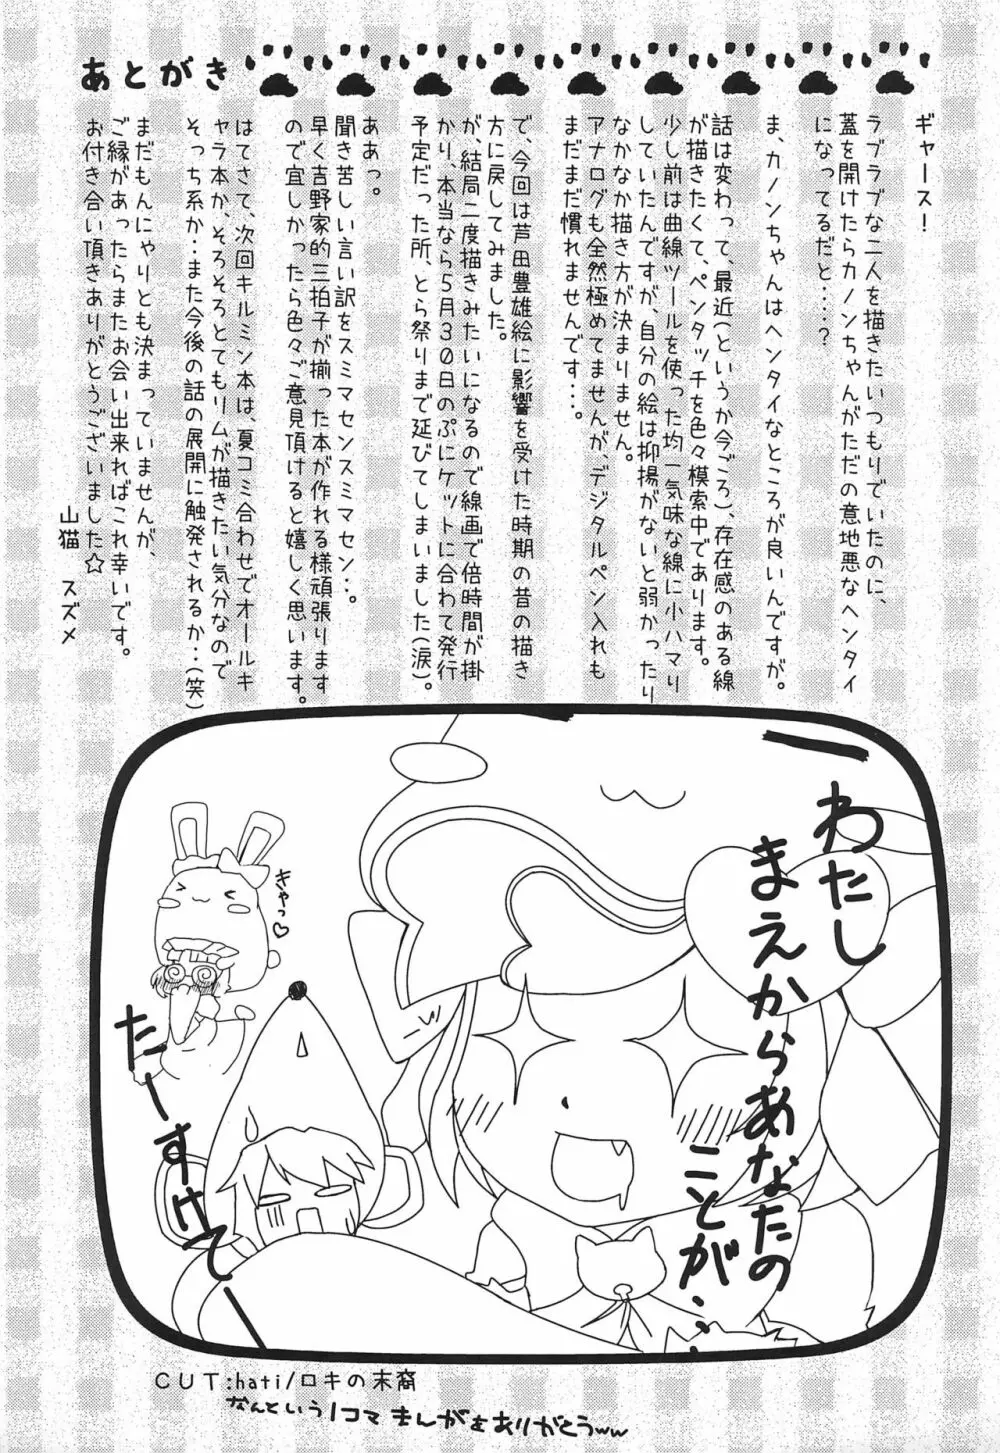 あとがき
ギャース！
ラブラブな二人を描きたいつもりでいたのに、
蓋を開けたらカノンちゃんがただの意地悪なヘンタイ
になってるだと‥‥？
ま、カノンちゃんはヘンタイなところが良いんですが。
話は変わって、最近(というか今ごろ)、存在感のある線
が描きたくて、ペンタッチを色々模索中であります。
少し前は曲線ツールを使った均一気味な線に小ハマり
していたんですが、自分の絵は抑揚がないと弱かったり
なかなか描き方が決まりません。
アナログも全然極めてませんが、デジタルペン入れも
まだまだ慣れませんです‥‥。
で、今回は芦田豊雄絵に影響を受けた時期の昔の描き
方に戻してみました。
が、結局二度描きみたいになるので線画で倍時間が掛
かり、本当なら5月30日のぷにケットに合わせて発行
予定だった所、とら祭りまで延びてしまいました(涙)。
ああっ。
聞き苦しい言い訳をスミマセンスミマセン‥。
早く吉野家的三拍子が揃った本が作れる様頑張ります
ので宜しかったら色々ご意見頂けると嬉しく思います。
はてさて、次回キルミン本は、夏コミ合わせでオールキ
ャラ本か、そろそろとてもリムが描きたい気分なので
そっち系か‥また今後の話の展開に触発されるか‥(笑)
まだもんにゃりとも決まっていませんが、
ご縁があったらまたお会い出来ればこれ幸いです。
お付き合い頂きありがとうございました☆
山猫 スズメ
わたし
まえからあなたの
ことが‥‥
きゃっ♡
たーすけてー
CUT:hati/ロキの末裔
なんという1コマまんがをありがとうww